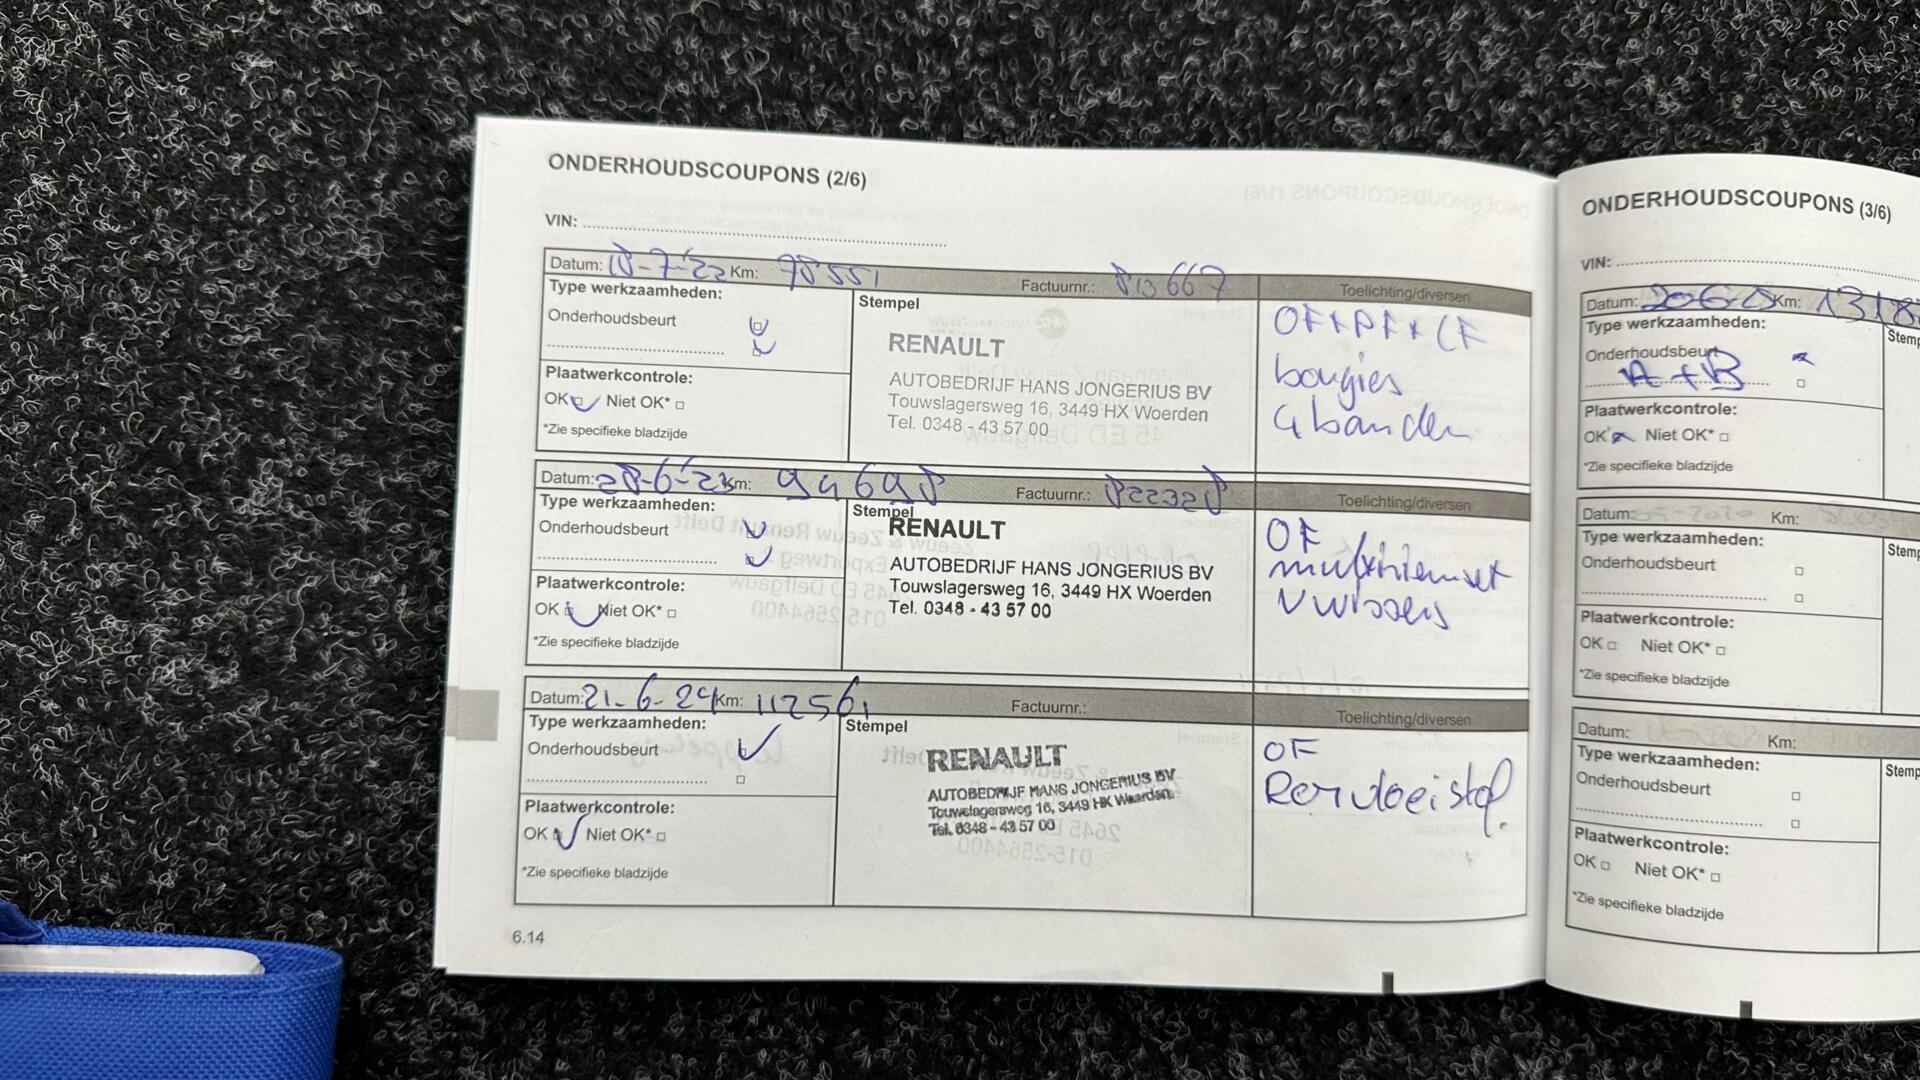 ONDERHOUDSCOUPONS (2/6)
VIN:
Datum: 18-7-'22 Km: 78551 Factuurnr.: 813667 Toelichting/diversen
Type werkzaamheden:
Onderhoudsbeurt
Plaatwerkcontrole:
OK Niet OK*
*Zie specifieke bladzijde
Stempel
RENAULT
AUTOBEDRIJF HANS JONGERIUS BV
Touwslagersweg 16, 3449 HX Woerden
Tel. 0348 - 43 57 00
OF+PF+CF
bougies
4 banden
Datum: 28-6-'23 Km: 94698 Factuurnr.: 822328 Toelichting/diversen
Type werkzaamheden:
Onderhoudsbeurt
Plaatwerkcontrole:
OK Niet OK*
*Zie specifieke bladzijde
Stempel
RENAULT
AUTOBEDRIJF HANS JONGERIUS BV
Touwslagersweg 16, 3449 HX Woerden
Tel. 0348 - 43 57 00
OF
multiriemset
Vwissers
Datum: 21-6-24 Km: 112561 Factuurnr.: Toelichting/diversen
Type werkzaamheden:
Onderhoudsbeurt
Plaatwerkcontrole:
OK Niet OK*
*Zie specifieke bladzijde
Stempel
RENAULT
AUTOBEDRIJF HANS JONGERIUS BV
Touwslagersweg 16, 3449 HX Woerden
Tel. 0348 - 43 57 00
OF
Remvloeistof.
6.14
ONDERHOUDSCOUPONS (3/6)
VIN:
Datum: Km:
Type werkzaamheden:
Onderhoudsbeurt
A+B
Plaatwerkcontrole:
OK Niet OK*
*Zie specifieke bladzijde
Datum: Km:
Type werkzaamheden:
Onderhoudsbeurt
Plaatwerkcontrole:
OK Niet OK*
*Zie specifieke bladzijde
Datum: Km:
Type werkzaamheden:
Onderhoudsbeurt
Plaatwerkcontrole:
OK Niet OK*
*Zie specifieke bladzijde